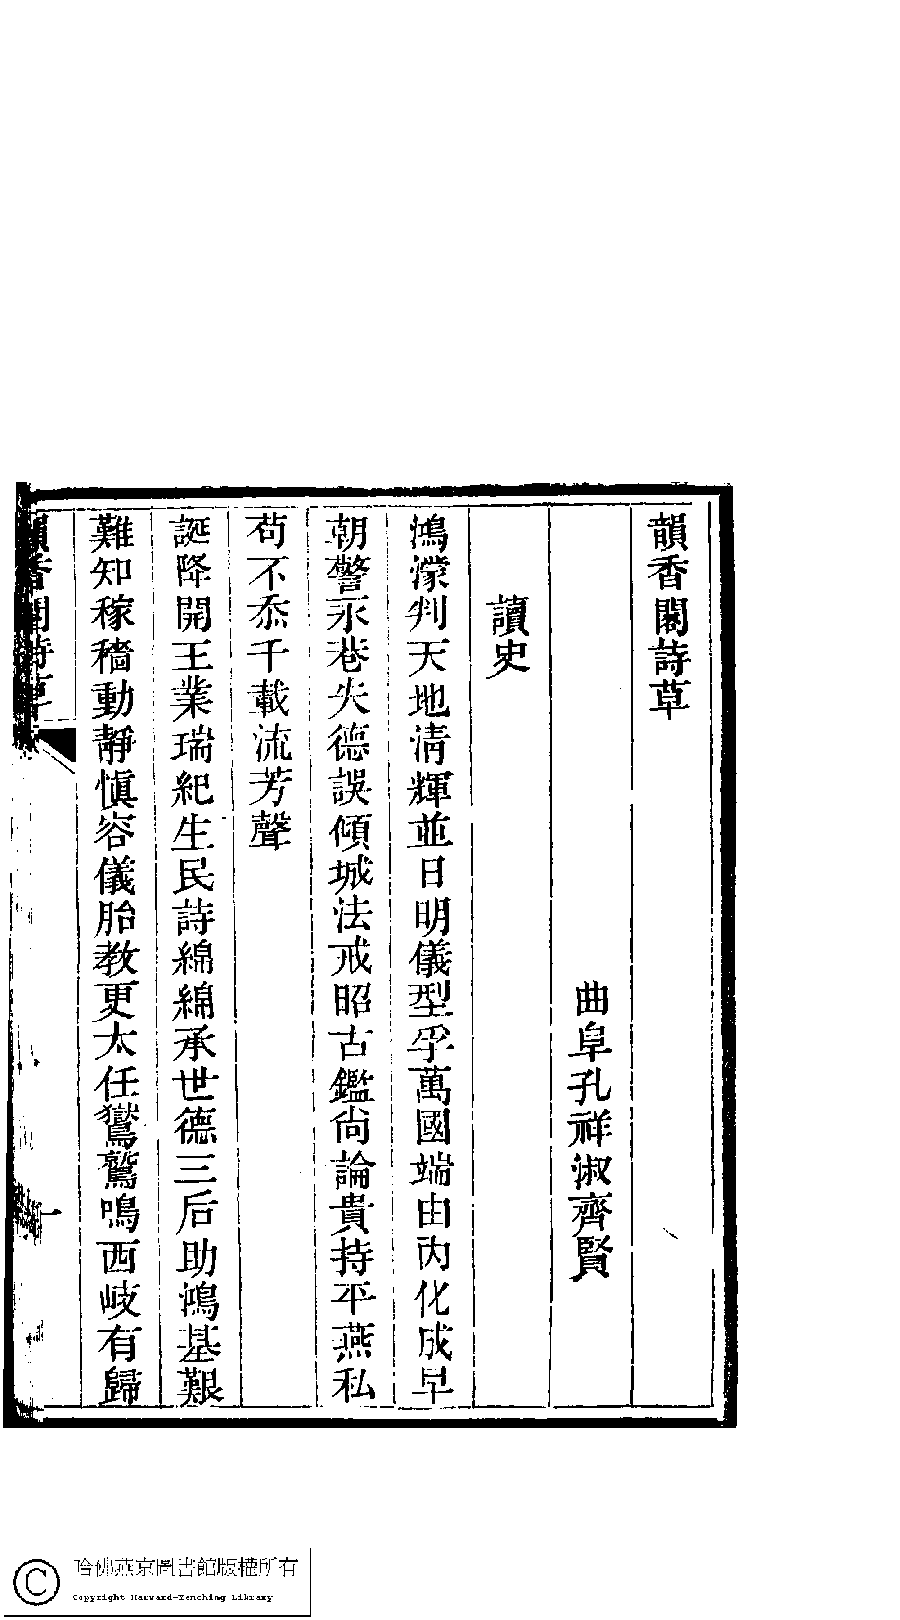 韻香閣詩草
曲阜孔祥淑齊賢
讀史
鴻濛判天地清輝並日明儀型孚萬國端由內化成早
朝警永巷失德誤傾城法戒昭古鑑尙論貴持平燕私
苟不忝千載流芳聲
誕降開王業瑞紀生民詩綿綿承世德三后助鴻基艱
難知稼穡動靜愼容儀胎教更太任鸑鷟鳴西岐有歸
韻香閣詩草
一
哈佛燕京圖書館版權所有
Copyright Harvard-Yenching Library